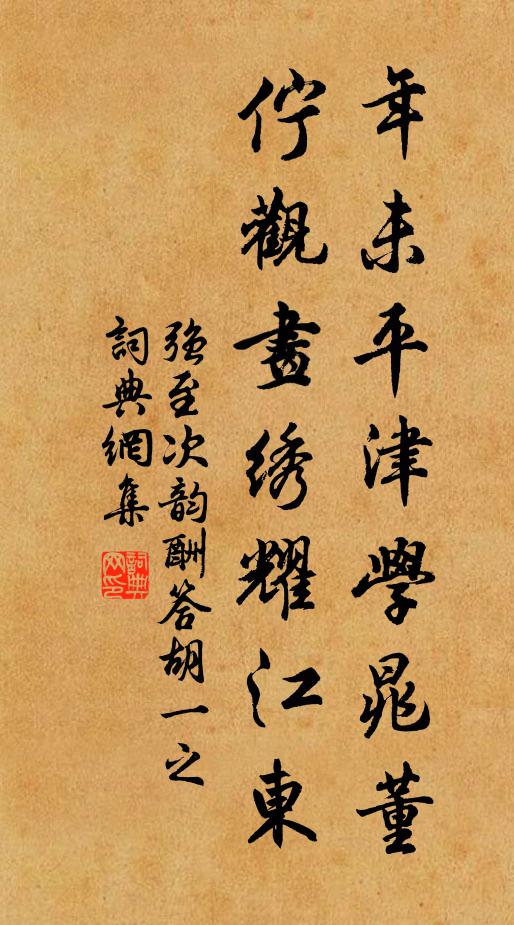 年未平津學晁董
佇觀晝綉耀江東
强至次韵酬答胡一之
詞典網集
詞典网印